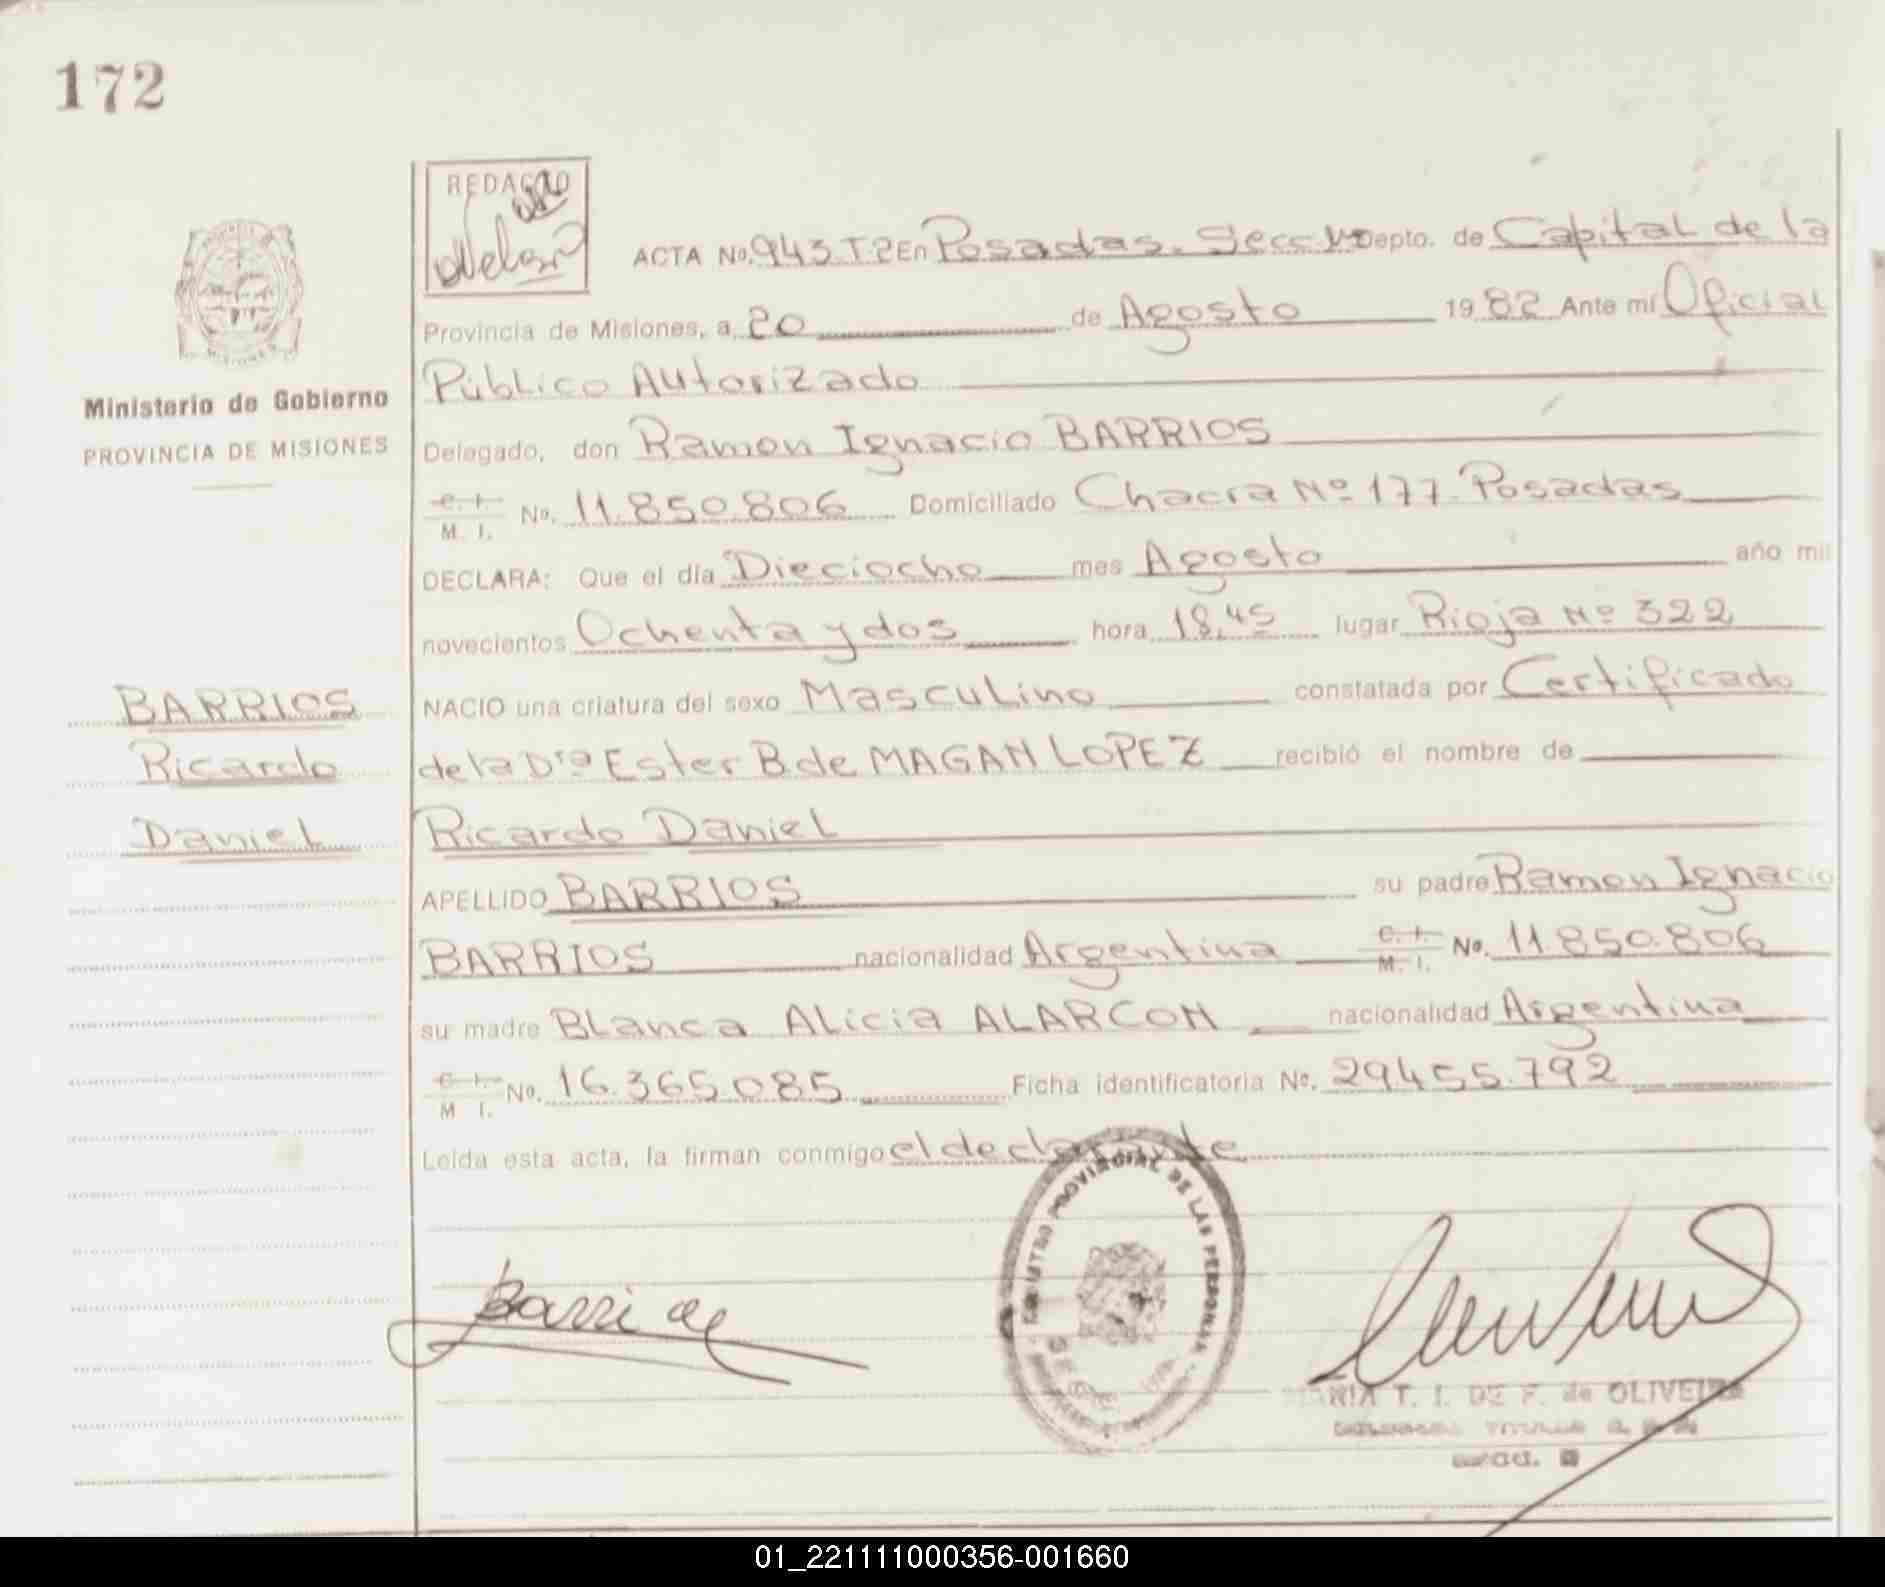 172
REDACTO
ACTA No. 943 T.2 En Posadas. Secc Depto. de Capital de la
Provincia de Misiones, a 20 de Agosto 1982 Ante mí Oficial
Público Autorizado
Ministerio de Gobierno
PROVINCIA DE MISIONES
Delegado, don Ramon Ignacio BARRIOS
C. I.
M. I. No. 11.850.806 Domiciliado Chacra Nº 177. Posadas
DECLARA: Que el día Dieciocho mes Agosto año mil
novecientos Ochenta y dos hora 18,45 lugar Rioja Nº 322
NACIO una criatura del sexo Masculino constatada por Certificado
de la Dra Ester B. de MAGAN LOPEZ recibió el nombre de
Ricardo Daniel
BARRIOS
Ricardo
Daniel
APELLIDO BARRIOS su padre Ramon Ignacio
BARRIOS nacionalidad Argentina C. I. M. I. No. 11.850.806
su madre Blanca Alicia ALARCON nacionalidad Argentina
C. I.
M I. No. 16.365.085 Ficha identificatoria No. 29455.792
Leída esta acta, la firman conmigo el declarante
Barrios
PROVINCIAL DE LAS PERSONAS
MARIA T. I. DE F. de OLIVEIRA
01_221111000356-001660